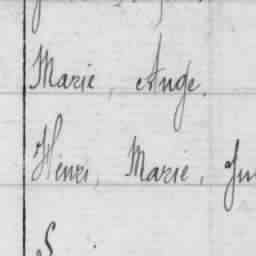 Marie, Ange.
Henri, Marie,